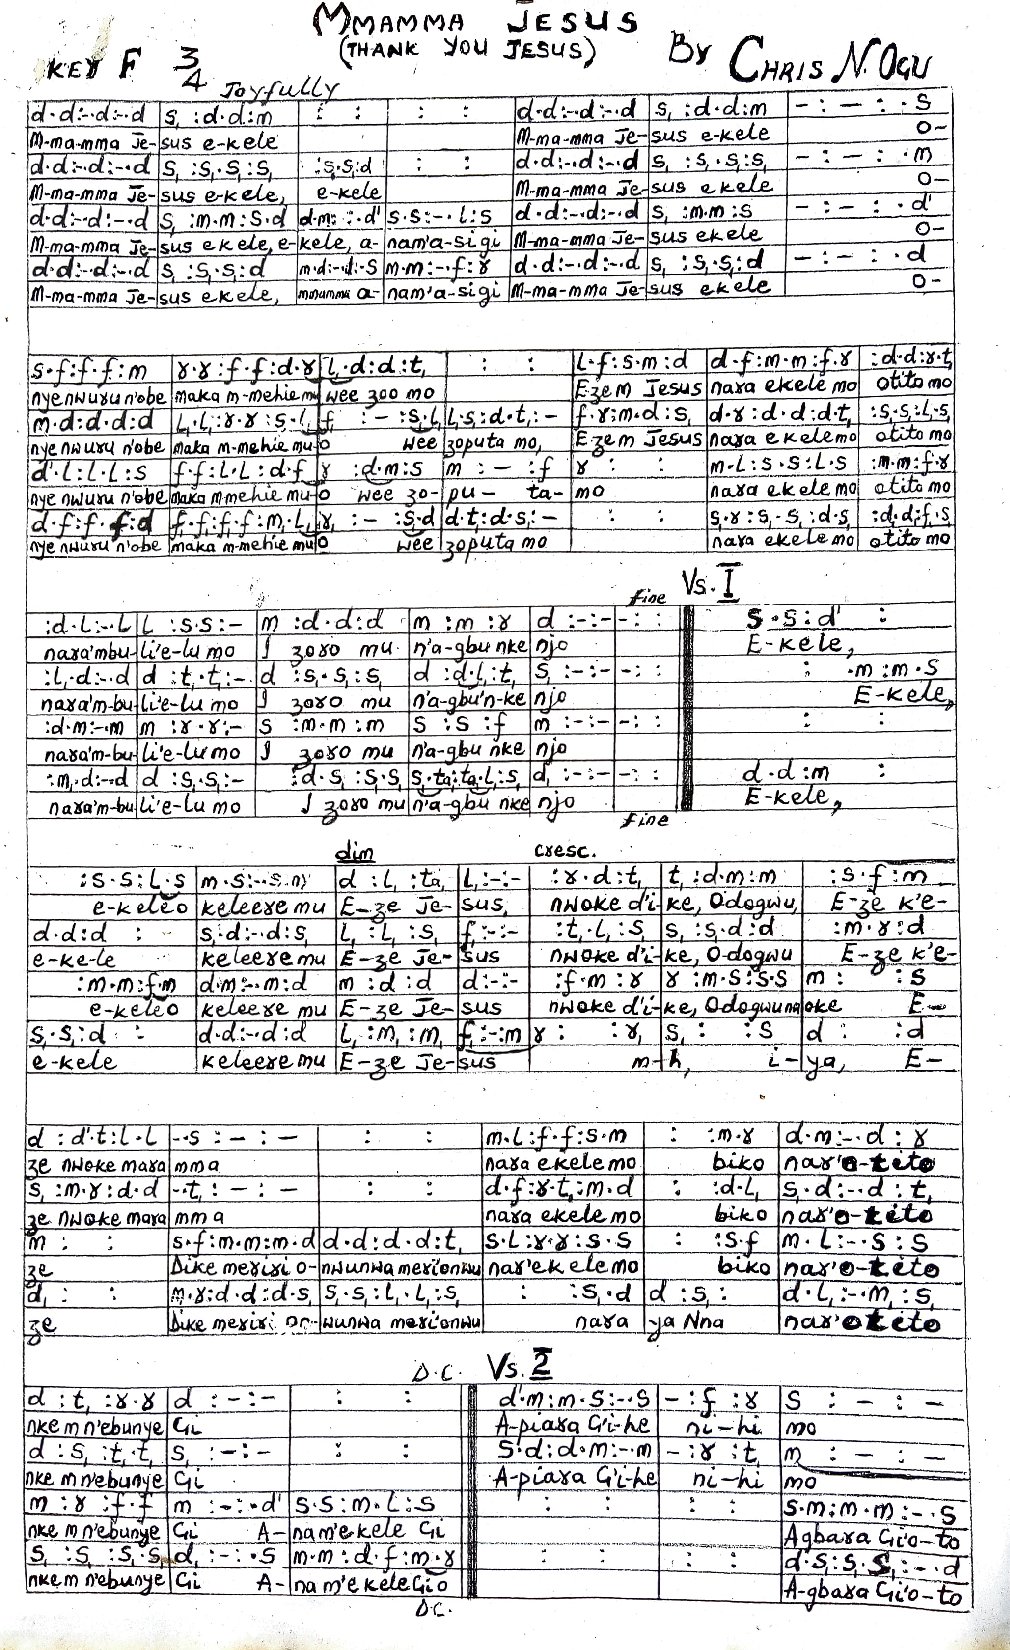 MMAMMA JESUS
(THANK YOU JESUS)
KEY F 3/4 By CHRIS N. OGU
Joyfully
d·d:-·d:-·d | s, :d·d:m | : : : : | d·d:-·d:-·d | s, :d·d:m | - : - : ·s
M-ma-mma Je-sus e-kele M-ma-mma Je-sus e-kele O-
d·d:-·d:-·d | s, :s,·s,:s, | :s,·s,:d | : : | d·d:-·d:-·d | s, :s,·s,:s, | - : - : ·m
M-ma-mma Je-sus e-kele, e-kele M-ma-mma Je-sus e kele O-
d·d:-·d:-·d | s, :m·m:s·d | d·m: :·d' | s·s:-·l:s | d·d:-·d:-·d | s, :m·m:s | - : - : ·d'
M-ma-mma Je-sus e kele, e-kele, a-nam'a-si gi M-ma-mma Je-sus e kele O-
d·d:-·d:-·d | s, :s,·s,:d | m·d:-·d:-·s | m·m:-·f:r | d·d:-·d:-·d | s, :s,·s,:d | - : - : ·d
M-ma-mma Je-sus ekele, mmamma a-nam'a-sigi M-ma-mma Je-sus ekele O-
s·f:f·f:m | r·r:f·f:d·r | l,·d:d:t, | : : | l·f:s·m:d | d·f:m·m:f·r | :d·d:r·t,
nye nwuru n'obe maka m-mehie mu wee zoo mo Ezem Jesus nara ekele mo otito mo
m·d:d·d:d | l,·l,:r·r:s·l, | f : - :s·l | l·s:d·t,:- | f·r:m·d:s, | d·r:d·d:d·t, | :s,·s,:l,·s,
nye nwuru n'obe maka m-mehie mu-o wee zoputa mo, Ezem Jesus nara ekele mo otito mo
d'·l:l·l:s | f·f:l·l:d·f | r :d·m:s | m : - :f | r : : | m·l:s·s:l·s | :m·m:f·r
nye nwuru n'obe maka m-mehie mu-o wee zo-pu-ta-mo nara ekele mo otito mo
d·f:f·f:d | f,·f,:f,·f,:m,·l, | r, : - :s,·d | d·t,:d·s,:- | : : | s,·r:s,·s,:d·s, | :d·d:f,·s,
nye nwuru n'obe maka m-mehie mu-o wee zoputa mo nara ekele mo otito mo
fine Vs. I
:d·l:-·l | l :s·s:- | m :d·d:d | m :m :r | d :-:- | -: : | s·s:d' :
nara'mbu-li'e-lu mo I zoro mu n'a-gbu nke njo E-kele,
:l,·d:-·d | d :t,·t,:- | d :s,·s,:s, | d :d·l,:t, | s, :-:- | -: : | : ·m:m·s
nara'm-bu-li'e-lu mo I zoro mu n'a-gbu'n-ke njo E-kele,
:d·m:-·m | m :r·r:- | s :m·m:m | s :s :f | m :-:- | -: : | : :
nara'm-bu-li'e-lu mo I zoro mu n'a-gbu nke njo
:m,·d:-·d | d :s,·s,:- | :d·s, :s,·s, | s,·ta,:ta,·l,:s, | d, :-:- | -: : | d·d:m :
nara'm-bu li'e-lu mo I zoro mu n'a-gbu nke njo E-kele,
fine
dim cresc.
:s·s:l·s | m·s:-·s:m | d :l, :ta, | l,:-:- | :r·d:t, | t, :d·m:m | :s·f:m
e-keleo keleere mu E-ze Je-sus, nwoke d'i-ke, Odogwu, E-ze k'e-
d·d:d : | s,·d:-·d:s, | l, :l, :s, | f,:-:- | :t,·l,:s, | s, :s,·d:d | :m·r:d
e-ke-le keleere mu E-ze Je-sus nwoke d'i-ke, O-dogwu E-ze k'e-
:m·m:f·m | d·m:-·m:d | m :d :d | d:-:- | :f·m:r | r :m·s:s·s | m : :s
e-keleo keleere mu E-ze Je-sus nwoke d'i-ke, Odogwuna oke E-
s,·s,:d : | d·d:-·d:d | l, :m, :m, | f,:-:m | r : :r, | s, : :s | d : :d
e-kele keleere mu E-ze Je-sus m-h, i-ya, E-
d :d'·t:l·l | -·s :- :- | : : | m·l:f·f:s·m | : :m·r | d·m:-·d:r
ze nwoke mara mma nara ekele mo biko nar'o-tito
s, :m·r:d·d | -·t, :- :- | : : | d·f:r·t,:m·d | : :d·l, | s,·d:-·d:t,
ze nwoke mara mma nara ekele mo biko nar'o-tito
m : : | s·f:m·m:m·d | d·d:d·d:t, | s·l:r·r:s·s | : :s·f | m·l:-·s:s
ze Dike meriri o-nwunwa meri'onwu nar'ekelemo biko nar'o-tito
d, : : | m·r:d·d:d·s, | s,·s,:l,·l,:s, | : :s,·d | d :s, : | d·l,:-·m,:s,
ze Dike meriri on-wunwa meri'onwu nara ya Nna nar'otito
D.C. Vs. 2
d :t, :r·r | d :-:- | : : | d'·m:m·s:-·s | - :f :r | s : - : -
nke m n'ebunye Gi A-piara G'i-he ni-hi mo
d :s, :t,·t, | s, :-:- | : : | s·d:d·m:-·m | - :r :t, | m : - : -
nke m n'ebunye Gi A-piara G'i-he ni-hi mo
m :r :f·f | m :-:·d' | s·s:m·l:s | : : | : : | s·m:m·m:-·s
nke m n'ebunye Gi A-nam'e kele Gi Agbara Gi'o-to
s, :s, :s,·s, | d, :-:·s | m·m:d·f:m·r | : : | : : | d·s,:s,·s,:-·d
nke m n'ebunye Gi A-na m'e kele Gi o A-gbara Gi'o-to
D.C.